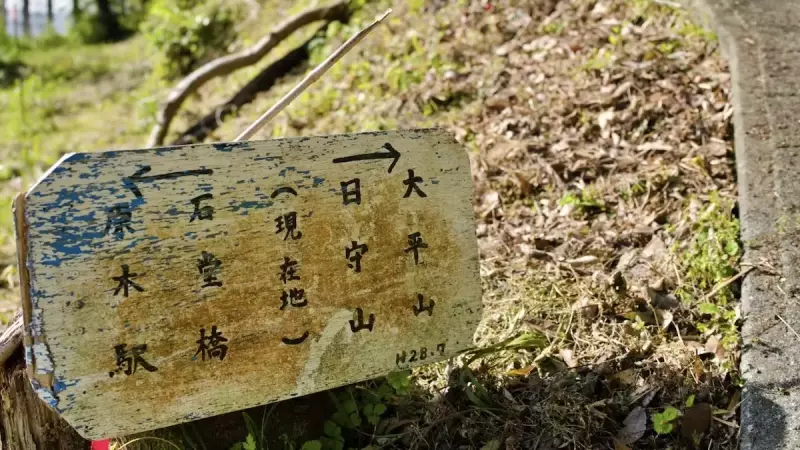 大平山
日守山
(現在地)
石堂橋
原木駅
H28.7